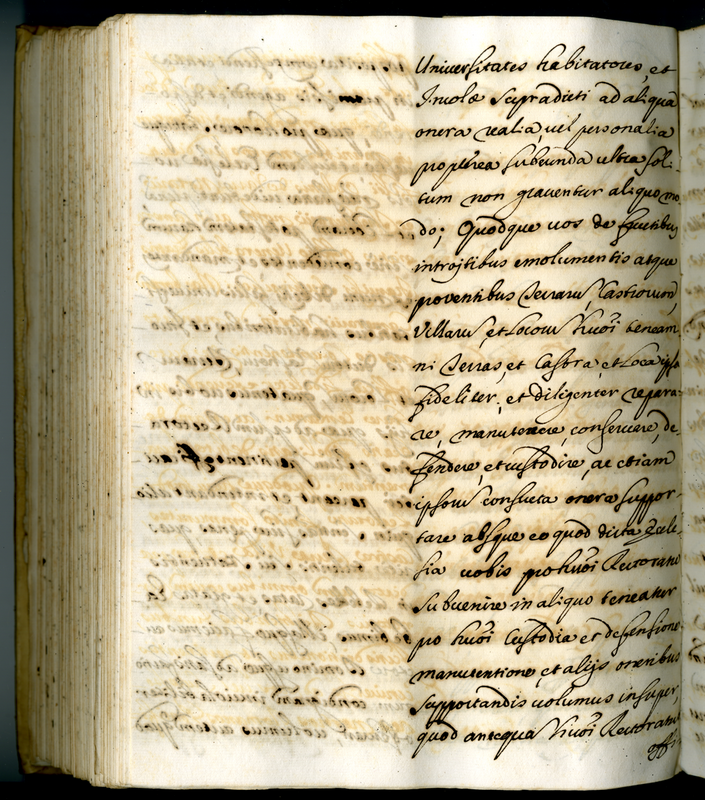 Universitates habitatores, et
Incolæ supradicti ad aliqua
onera realia, vel personalia
propterea subeunda ultra soli-
tum non graventur aliquo mo
do; Quodque vos de fructibus
introjtibus emolumentis atque
proventibus Terraru, Castrorum,
Villaru, et Locoru teneami
ni Terras, et Castra, et Loca ipsa
fideliter, et diligenter repara-
re, manutenere, conservare, de-
fendere, et custodire, ac etiam
ipsoru consueta onera suppor-
tare absque eo quod dicta Eccle-
sia vobis pro Rectoratu
subvenire in aliquo teneatur
pro Custodia et defensione
manutentione, et alijs oneribus
supportandis volumus insuper,
quod antequa Rectoratus